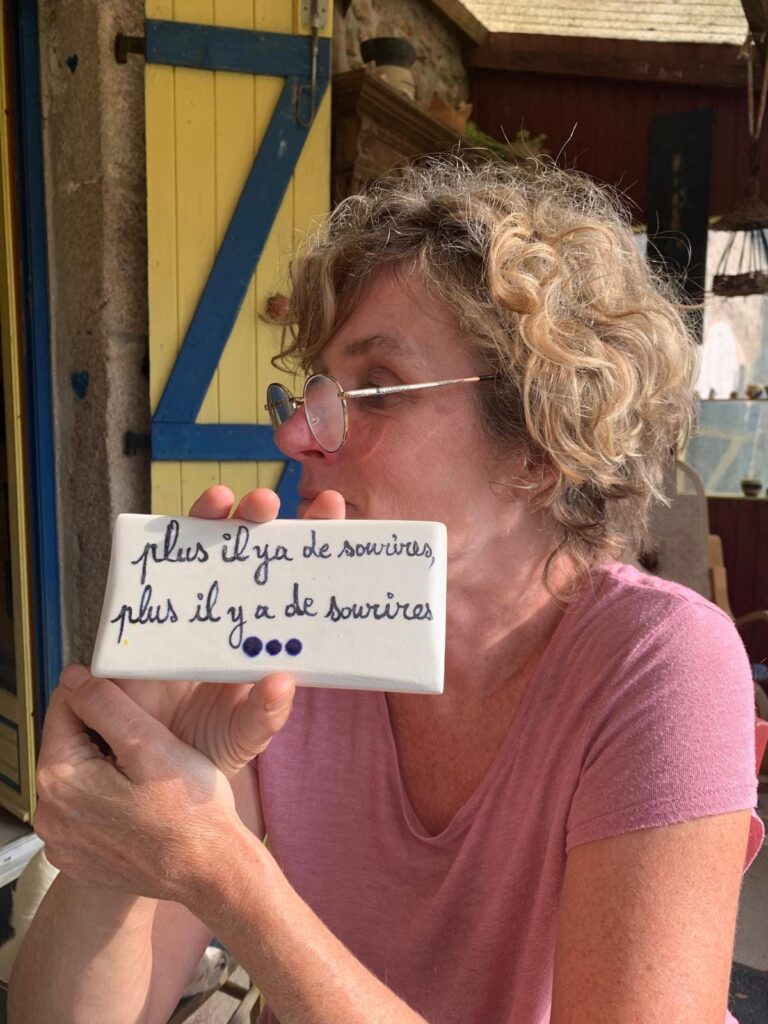 plus il y a de sourires,
plus il y a de sourires
...